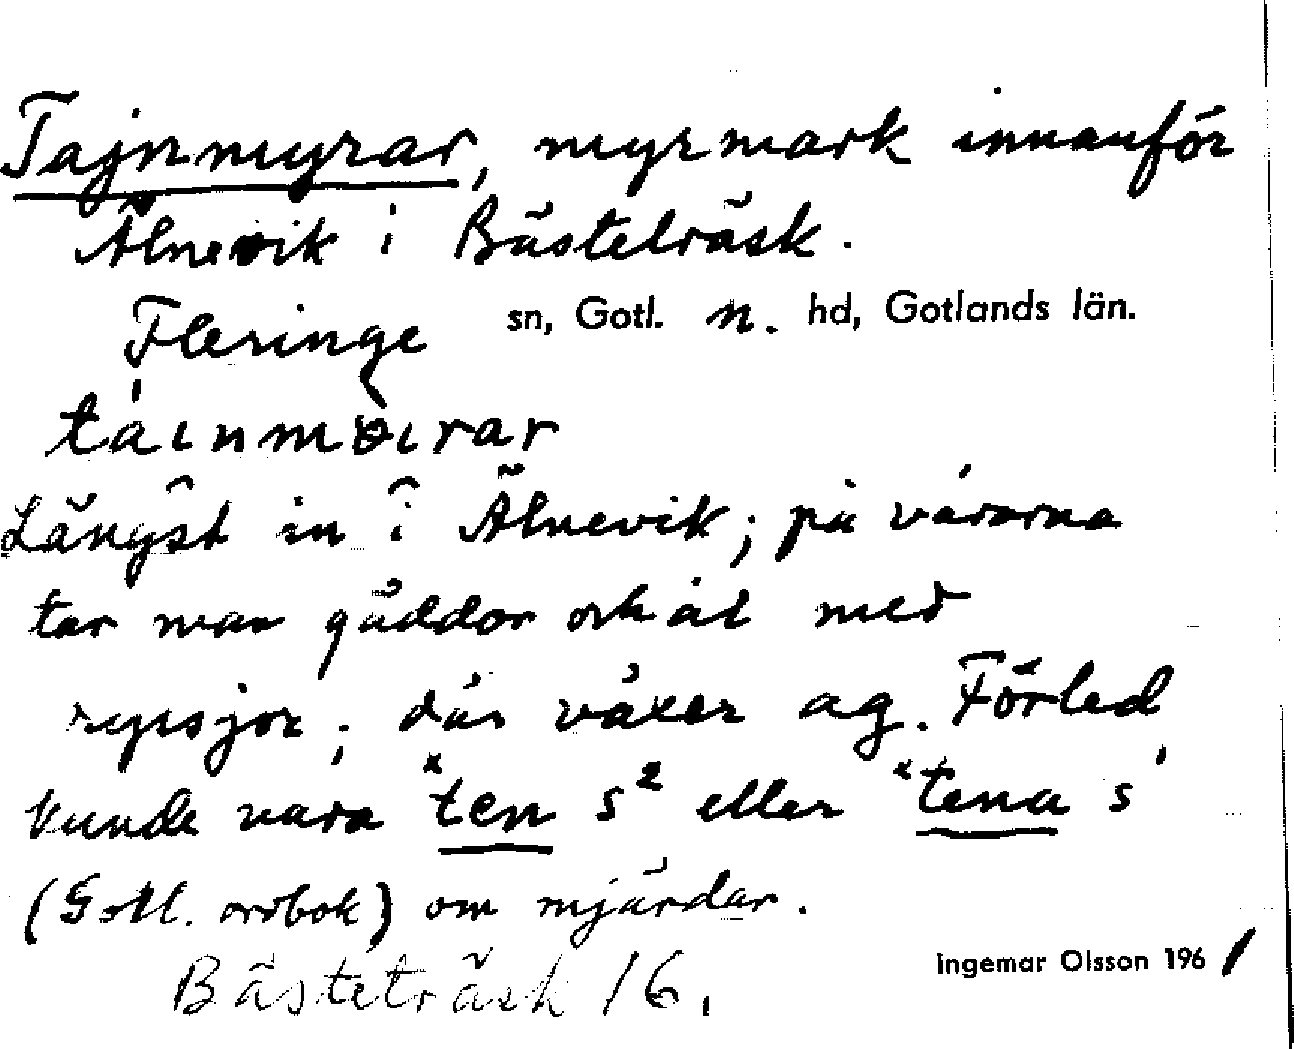 Tajnmyrar, myrmark innanför
Älnevik i Bästeträsk.
Fleringe sn, Gotl. n. hd, Gotlands län.
tainmòirar
Längst in i Älnevik; på vårarna
tar man gäddor och ål med
rysjor; där växer ag. Förled
kunde vara *ten s² eller *tena s'
(Gotl. ordbok) om mjärdar.
Bästeträsk 16.
Ingemar Olsson 1961